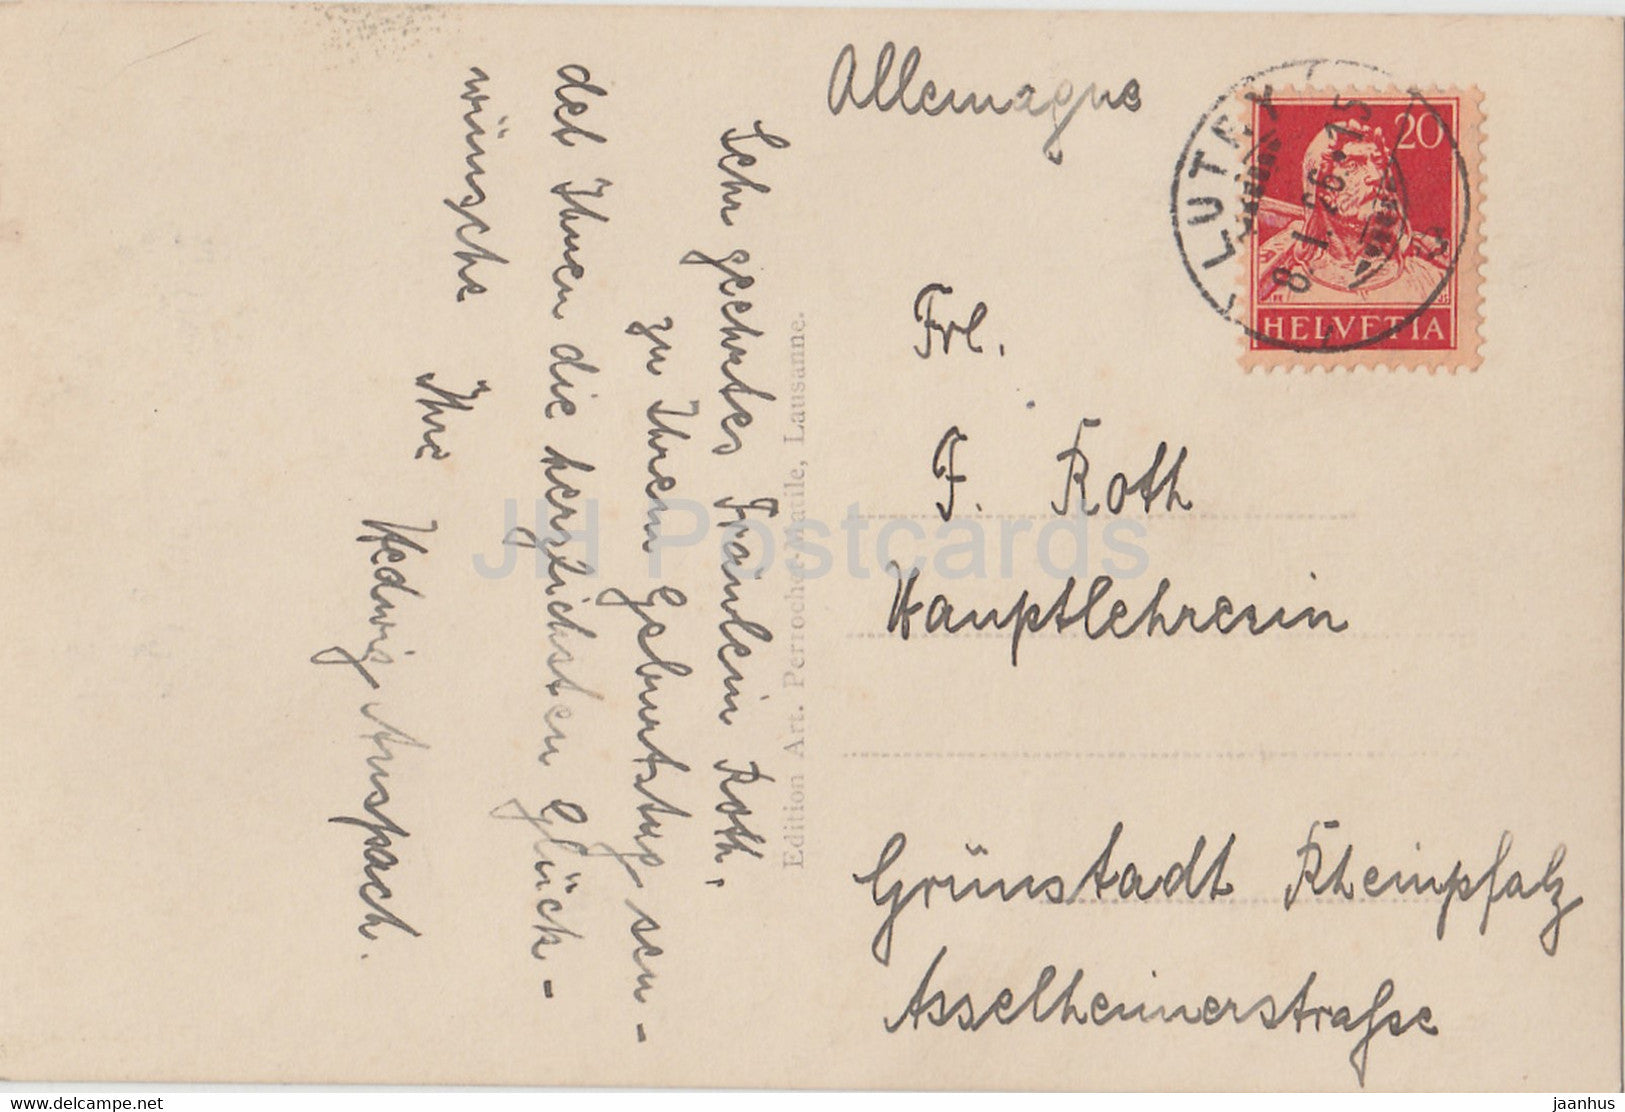 Allemagne
LUTRY
8.I.26.15
20
HELVETIA
Sehr geehrtes Fräulein Roth.
Zu Ihrem Geburtstag sen-
det Ihnen die herzlichsten Glück-
wünsche
Ihre
Hedwig Auspach.
Edition Art. Perrochet-Matile, Lausanne.
Frl.
F. Roth
Hauptlehrerin
Grünstadt Rheinpfalz
Asselheimerstraße
JH Postcards
www.delcampe.net
jaanhus